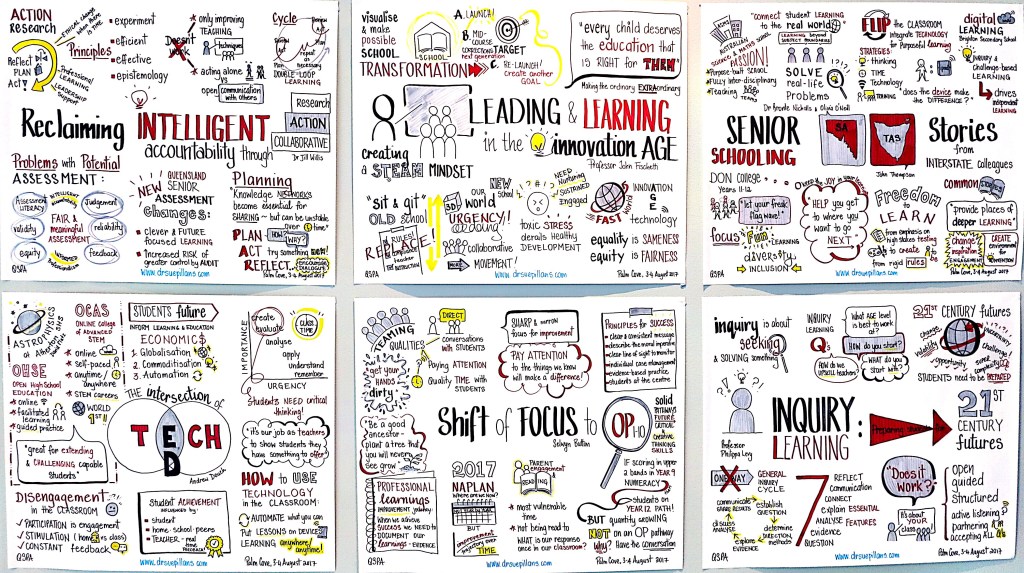 ACTION
Research
Reflect
PLAN
Act!
ETHICAL change
when there
is TIME
Professional
LEARNING
LEADERSHIP
Support
Principles
experiment
efficient
effective
epistemology
only improving
TEACHING
techniques
Doesn't
work
acting alone
open communication
with others
Cycle
DOUBLE-LOOP
LEARNING
Reclaiming INTELLIGENT
accountability through
research
ACTION
COLLABORATIVE
Dr Jill Willis
Problems with Potential
ASSESSMENT:
Assessment
LITERACY
INTELLIGENT
Judgement
validity
FAIR &
meaningful
ASSESSMENT
reliability
equity
INFORMED
feedback
QUEENSLAND
NEW SENIOR
ASSESSMENT
changes:
clever & FUTURE
focused LEARNING
INCREASED RISK of
greater control by AUDIT
Planning
Knowledge NETWORKS
become essential for
SHARING - but can be unstable
over time
PLAN HOW? WAY?
ACT try something NEW!
REFLECT... encourage
DIALOGUE
QSPA
www.drsuepillans.com
Palm Cove, 3-4 August 2017
visualise
& make
possible
SCHOOL
TRANSFORMATION
SCHOOL
A. LAUNCH!
B. MID-
COURSE
CORRECTIONS
next generation
TARGET
C. RE-LAUNCH!
create another
GOAL
"every child deserves
the education that
IS RIGHT for THEM"
Making the ordinary EXTRAordinary
LEADING & LEARNING
in the innovation AGE
Professor John Fischetti
creating
a STEAM MINDSET
"sit & git"
OLD school
RULES!
REPLACE
NEW
school
OUR
WORLD
URGENCY!
collaborative
MOVEMENT!
NEED Nurturing
SUSTAINED
Engaged
toxic STRESS
derails Healthy
DEVELOPMENT
FAST
CHANGE
INNOVATION
AGE
technology
equality is SAMENESS
equity is FAIRNESS
QSPA
www.drsuepillans.com
Palm Cove, 3-4 August 2017
"connect student LEARNING
to the real world"
AUSTRALIAN
SCIENCE & MATHS SCHOOL
PASSION!
Purpose-built SCHOOL
FULLY Inter-disciplinary
Teaching
LEARNING beyond
SUBJECT BOUNDARIES
SOLVE
real-life
Problems
FLIP the CLASSROOM
Integrate TECHNOLOGY
for Purposeful learning
STRATEGIES
thinking
TIME
Technology
TRAINING
does the device make
the DIFFERENCE?
digital
LEARNING
Brighton Secondary School
inquiry &
challenge-based
LEARNING
drives
independent
LEARNING
SENIOR
SCHOOLING
SA
TAS
Stories
from
INTERSTATE colleagues
John Thompson
DON college
YEARS 11-12
"let your freak
flag wave!"
focus on
LEARNING
diversity
INCLUSION
HELP you get
to where you
want to go
NEXT
Freedom
to LEARN
from emphasis on
high stakes testing
to creation
from rigid rules
common
stories
"provide places of
deeper LEARNING"
change
inspiration
ENGAGEMENT
CREATE
ENVIRONMENT
for INNOVATION
QSPA
www.drsuepillans.com
Palm Cove, 3-4 August 2017
ASTROPHYSICS
OCAS
ONLINE College
of ADVANCED
STEM
online
self-paced
anytime/
anywhere
STEM careers
OHSE
OPEN High School
EDUCATION
online
facilitated
learning
guided practice
WORLD
1ST!!
"great for extending
& CHALLENGING capable
students"
STUDENTS future
INFORM LEARNING & EDUCATION
ECONOMIC$
1. Globalisation
2. Commoditisation
3. Automation
The intersection of
TECH
ED
Andrew Douch
IMPORTANCE
create
evaluate
analyse
apply
understand
remember
CLASS
TIME
URGENCY
STUDENTS NEED critical
thinking!
"it's our job as teachers
to show students they
have something to offer"
DISENGAGEMENT
in the CLASSROOM
PARTICIPATION is engagement
STIMULATION (home vs class)
CONSTANT feedback
Student ACHIEVEMENT
INFLUENCED by:
Student
home-school-peers
TEACHER - real
HOW to USE
TECHNOLOGY
in the CLASSROOM:
AUTOMATE what you can
Put LESSONS on DEVICES
LEARNING anywhere/
anytime!
QSPA
www.drsuepillans.com
Palm Cove, 3-4 August 2017
TEAMING
QUALITIES
"get your
HANDS
dirty"
DIRECT
conversations
with STUDENTS
Paying ATTENTION
Quality TIME with
STUDENTS
SHARP & narrow
focus for improvement
PAY ATTENTION
to the things we know
will make a difference!
PRINCIPLES for SUCCESS
clear & consistent message
describe the moral imperative
clear line of sight to monitor
individual case management
evidence-based practice
students at the centre
Shift of FOCUS to OP 1-10
Selwyn Button
solid
PATHWAYS
FUTURE
CRITICAL
& creative
THINKING
SKILLS
"Be a good
ancestor-
plant a tree that
you will never
see grow"
PROFESSIONAL
learnings
IMPROVEMENT journey:
When we achieve
success we need to
DOCUMENT our
learnings = EVIDENCE
2017
NAPLAN
Where are we now?
BUT
IMPROVEMENT
over TIME
PARENT
engagement
READING
most vulnerable
time
not being read to
WHAT is our response
once in our classroom?
if scoring in upper
2 bands in YEAR 9
NUMERACY
students on
YEAR 12 PATH!
BUT quantity growing
NOT on an OP pathway
why? Have the conversation
QSPA
www.drsuepillans.com
Palm Cove, 3-4 August 2017
inquiry is about
seeking
& SOLVING something
INQUIRY
LEARNING
Q's
HOW do you
UPSKILL teachers?
What AGE level
is best to work
at?
HOW do you start?
WHAT do you
start with?
21ST CENTURY futures
change
volatility
Opportunity
uncertainty
Challenge
complexity
STUDENTS need to be PREPARED
Professor
Philippa Levy
INQUIRY
LEARNING:
Preparing students for
21ST
CENTURY
futures
ONE WAY
GENERAL
INQUIRY
CYCLE
communicate
& SHARE RESULTS
establish
QUESTION
determine
DIRECTION,
methods
explore
EVIDENCE
discuss
ANALYSE
7 ESSENTIAL
FEATURES
REFLECT
Communication
CONNECT
explain
ANALYSE
evidence
QUESTION
"Does it
Work?"
It's about
YOUR
classroom!
open
guided
structured
active listening?
partnering
accepting ALL
QSPA
www.drsuepillans.com
Palm Cove, 3-4 August 2017